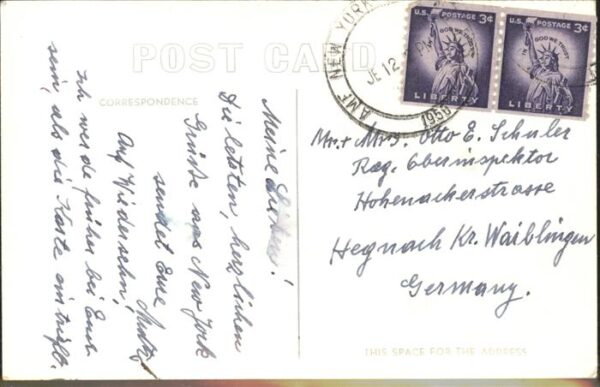 POST CARD
CORRESPONDENCE
Meine Lieben!
Die letzten, herzlichen
Grüsse aus New York
sendet Eure
Auf Wiedersehn!
Ich werde früher bei Euch
sein, als die Karte eintrifft.
AMF NEW YORK
JE 12
PM
1958
U.S. POSTAGE 3¢
IN GOD WE TRUST
LIBERTY
U.S. POSTAGE 3¢
IN GOD WE TRUST
LIBERTY
Mr. + Mrs. Otto E. Schuler
Reg. Oberinspektor
Hohenackerstrasse
Hegnach Kr. Waiblingen
Germany.
THIS SPACE FOR THE ADDRESS